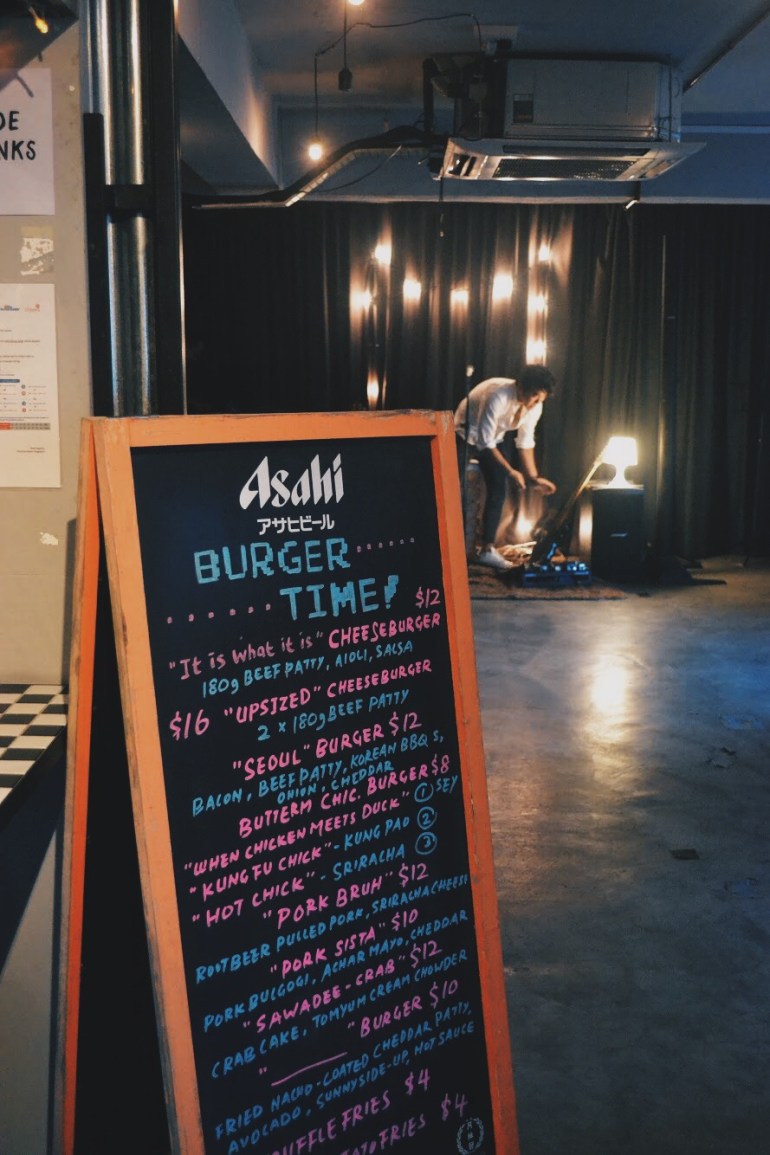 DE
NKS
Asahi
アサヒビール
BURGER
TIME!
"It is what it is" CHEESEBURGER $12
180g BEEF PATTY, AIOLI, SALSA
$16 "UPSIZED" CHEESEBURGER
2 x 180g BEEF PATTY
"SEOUL" BURGER $12
BACON, BEEF PATTY, KOREAN BBQ S,
ONION, CHEDDAR
BUTTERM CHIC. BURGER $8
"WHEN CHICKEN MEETS DUCK" ① SEY
"KUNG FU CHICK" - KUNG PAO ②
"HOT CHICK" - SRIRACHA ③
"PORK BRUH" $12
ROOTBEER PULLED PORK, SRIRACHA CHEESE
"PORK SISTA" $10
PORK BULGOGI, ACHAR MAYO, CHEDDAR
"SAWADEE-CRAB" $12
CRAB CAKE, TOMYUM CREAM CHOWDER
"______" BURGER $10
FRIED NACHO-COATED CHEDDAR PATTY,
AVOCADO, SUNNYSIDE-UP, HOT SAUCE
UFFLE FRIES $4
ATO FRIES $4